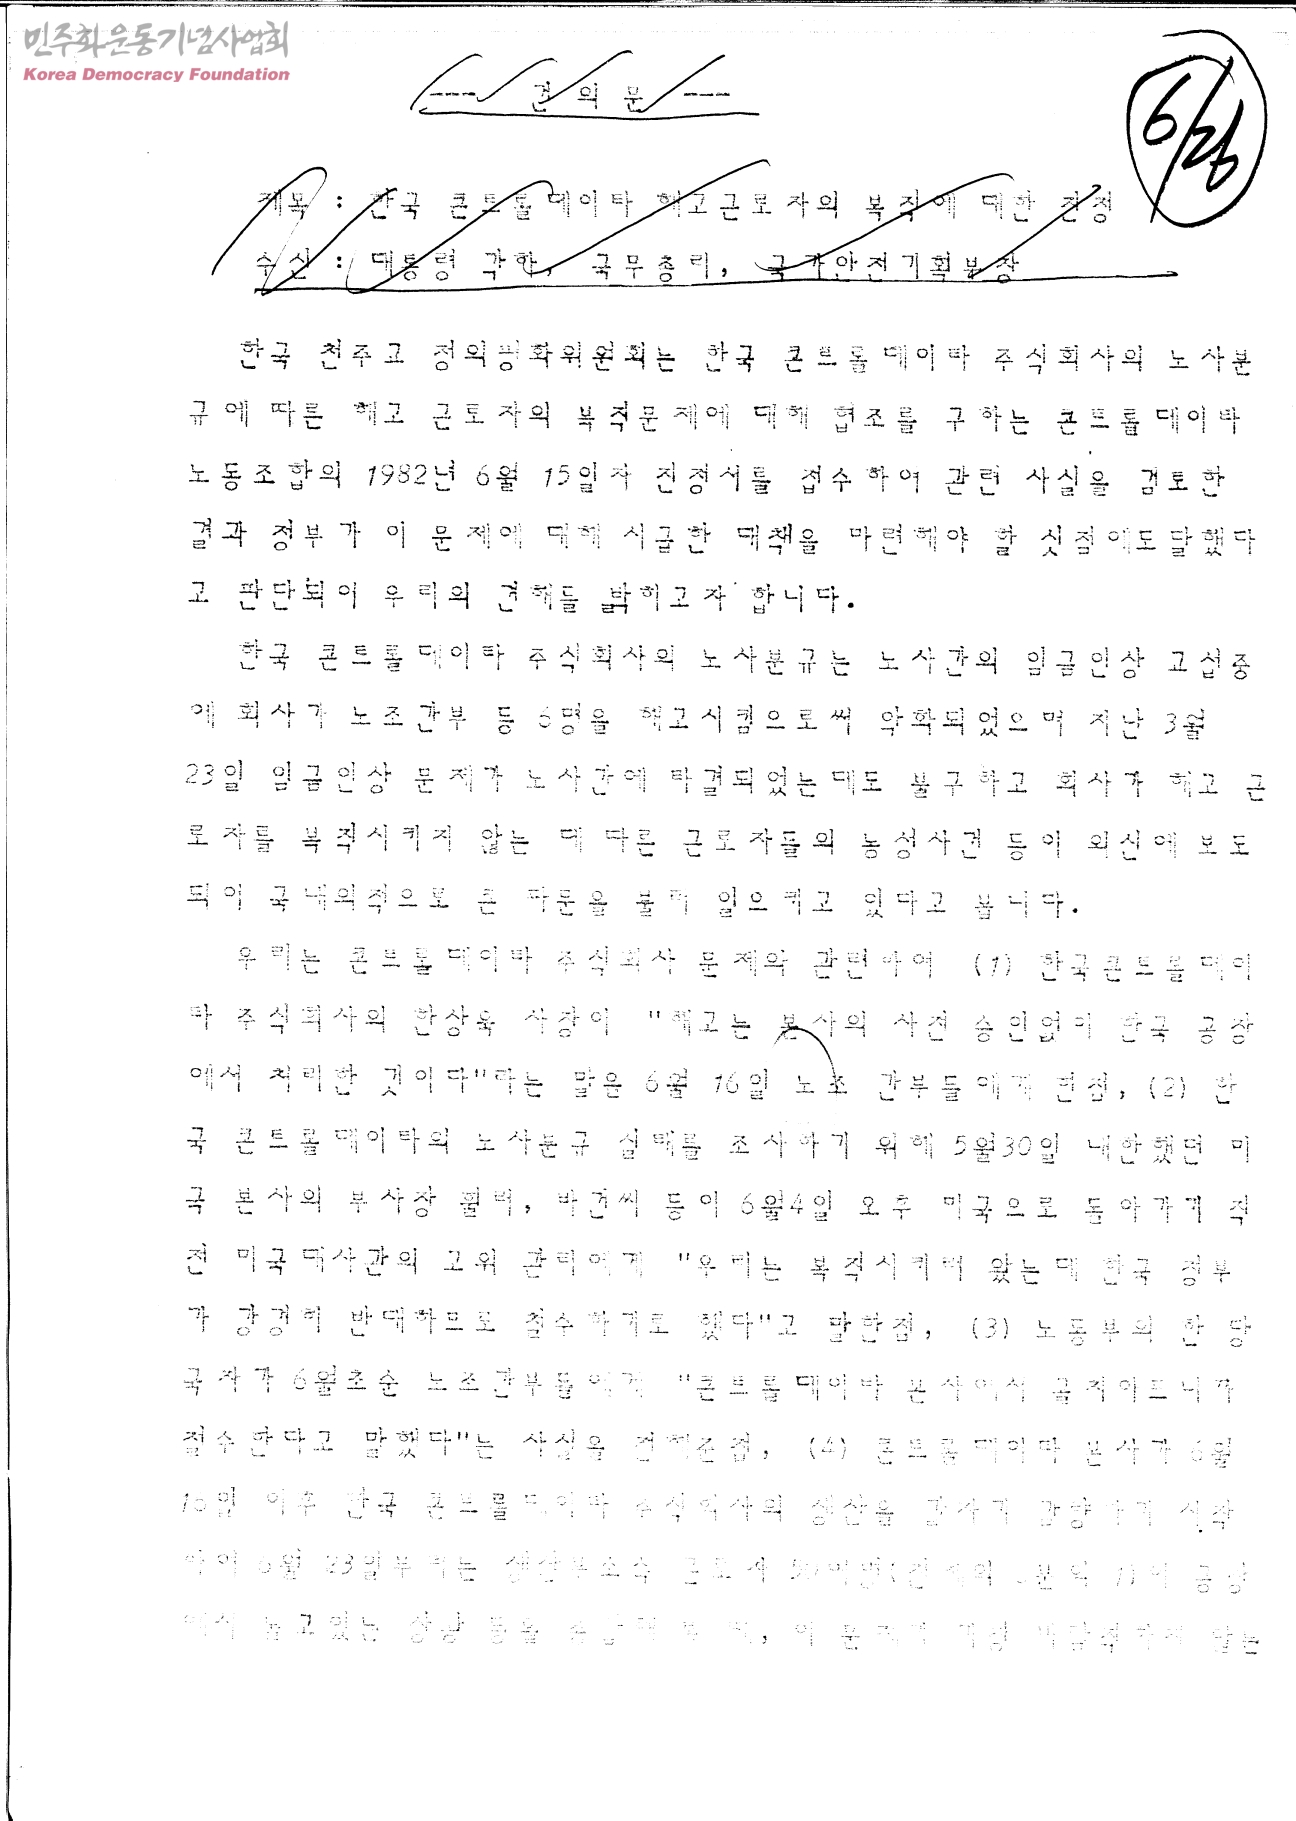 민주화운동기념사업회
Korea Democracy Foundation
--- 건 의 문 ---
제목 : 한국 콘트롤데이타 해고근로자의 복직에 대한 진정
수신 : 대통령 각하, 국무총리, 국가안전기획부장
한국 천주고 정의평화위원회는 한국 콘트롤데이타 주식회사의 노사분
규에 따른 해고 근로자의 복직문제에 대해 협조를 구하는 콘트롤데이타
노동조합의 1982년 6월 15일자 진정서를 접수하여 관련 사실을 검토한
결과 정부가 이 문제에 대해 시급한 대책을 마련해야 할 싯점에도달했다
고 판단되어 우리의 견해를 밝히고자 합니다.
한국 콘트롤데이타 주식회사의 노사분규는 노사간의 임금인상 고섭중
에 회사가 노조간부 등 6명을 해고시킴으로써 악화되었으며 지난 3월
23일 임금인상 문제가 노사간에 타결되었는데도 불구하고 회사가 해고 근
로자를 복직시키지 않는 데 따른 근로자들의 농성사건 등이 외신에 보도
되어 국내외적으로 큰 파문을 불러 일으키고 있다고 봅니다.
우리는 콘트롤데이타 주식회사 문제와 관련하여 (1) 한국콘트롤데이
타 주식회사의 한상욱 사장이 "해고는 본사의 사전 승인없이 한국 공장
에서 처리한 것이다"라는 말을 6월 16일 노조 간부들에게 한점, (2) 한
국 콘트롤데이타의 노사분규 실태를 조사하기 위해 5월30일 내한했던 미
국 본사의 부사장 휠러, 바건씨 등이 6월4일 오후 미국으로 돌아가기 직
전 미국대사관의 고위 관리에게 "우리는 복직시키러 왔는데 한국 정부
가 강경히 반대하므로 철수하기로 했다"고 말한점, (3) 노동부의 한 당
국자가 6월초순 노조간부들에게 "콘트롤데이타 본사에서 골치아프니까
철수한다고 말했다"는 사실을 전해준점, (4) 콘트롤데이타 본사가 6월
이후 한국 콘트롤데이타 주식회사의 생산을 시작
하여 6월 23일부터는 생산부소속 근로자
놀고있는 상황 등을 이 문제가